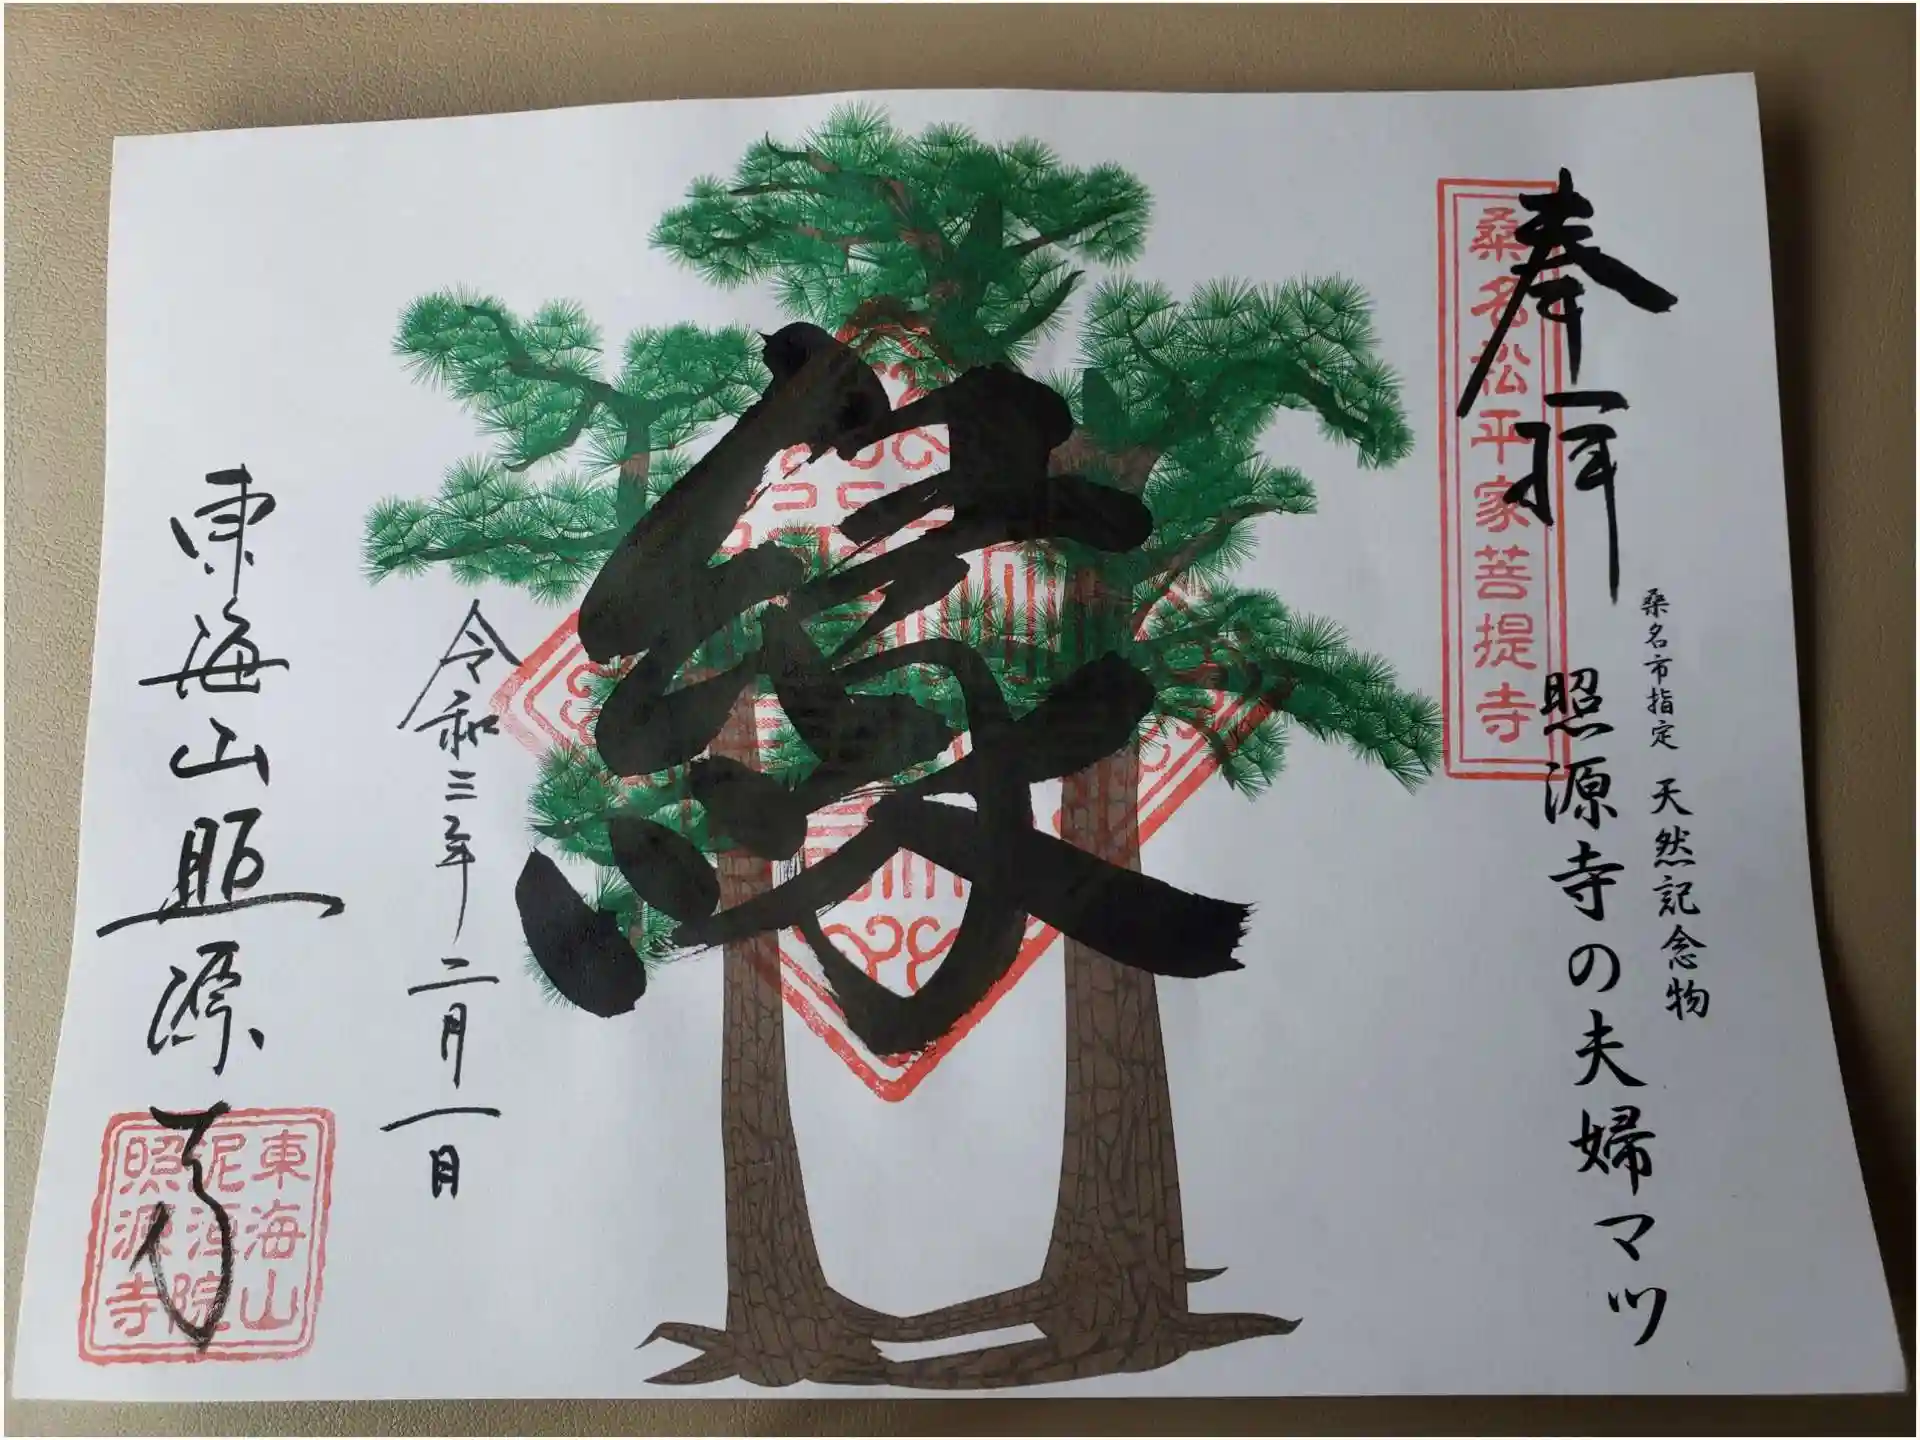 奉拝
桑名松平家菩提寺
桑名市指定 天然記念物
照源寺の夫婦マツ
縁
令和三年二月一日
東海山照源寺
東海山
泥洹院
照源寺